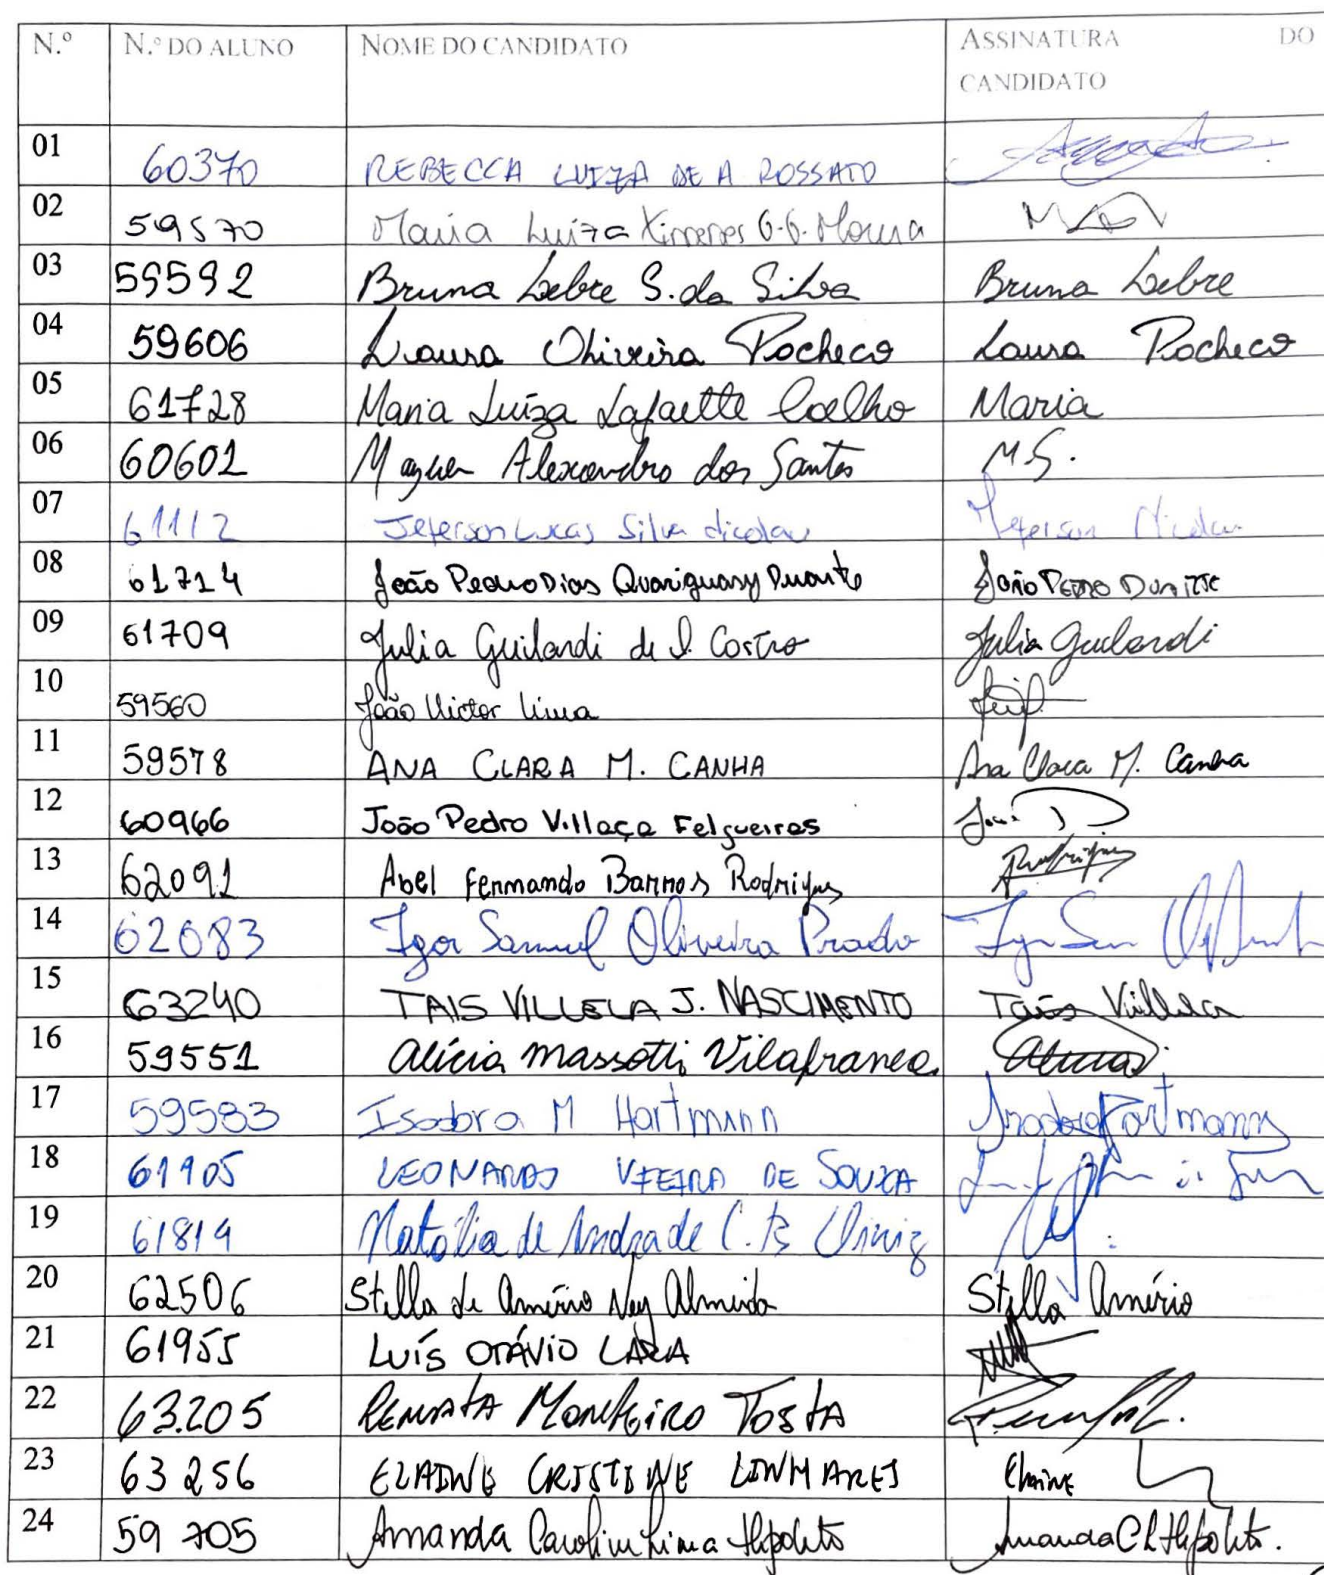 N.º N.º DO ALUNO NOME DO CANDIDATO ASSINATURA DO
CANDIDATO
01 60370 REBECCA LUIZA DE A ROSSATO
02 59570 Maria Luiza Ximenes G.G. Moura
03 59592 Bruna Lebre S. da Silva Bruna Lebre
04 59606 Laura Oliveira Pacheco Laura Pacheco
05 61728 Maria Luiza Lafaette Coelho Maria
06 60601 Alexandre dos Santos M.S.
07 61112 Jeferson Lucas Silva Nicolau Jeferson Nicolau
08 61714 João Pedro Dias Quariguasy Duarte João PEDRO DUARTE
09 61709 Julia Guilardi de S. Castro Julia Guilardi
10 59560 João Victor Lima
11 59578 ANA CLARA M. CANHA Ana Clara M. Canha
12 60966 João Pedro Villaça Felgueiras João
13 62091 Abel Fernando Barros Rodrigues Rodrigues
14 62083 Igor Samuel Oliveira Prado
15 63240 TAIS VILLELA J. NASCIMENTO Tais Villela
16 59551 alícia massotti Vilafranca
17 59583 Isadora M Hartmann Isadora Hartmann
18 61905 LEONARDO VIEIRA DE SOUZA
19 61819 Natália de Andrade C. B Diniz
20 62506 Stella de Amério Ney Almeida Stella Amério
21 61955 LUÍS OTÁVIO LARA
22 63205 RENATA MONTEIRO TOSTA
23 63256 ELAINE CRISTINE LINHARES Elaine
24 59705 Amanda Carolina Lima Hipolito Amanda C L Hipolito.